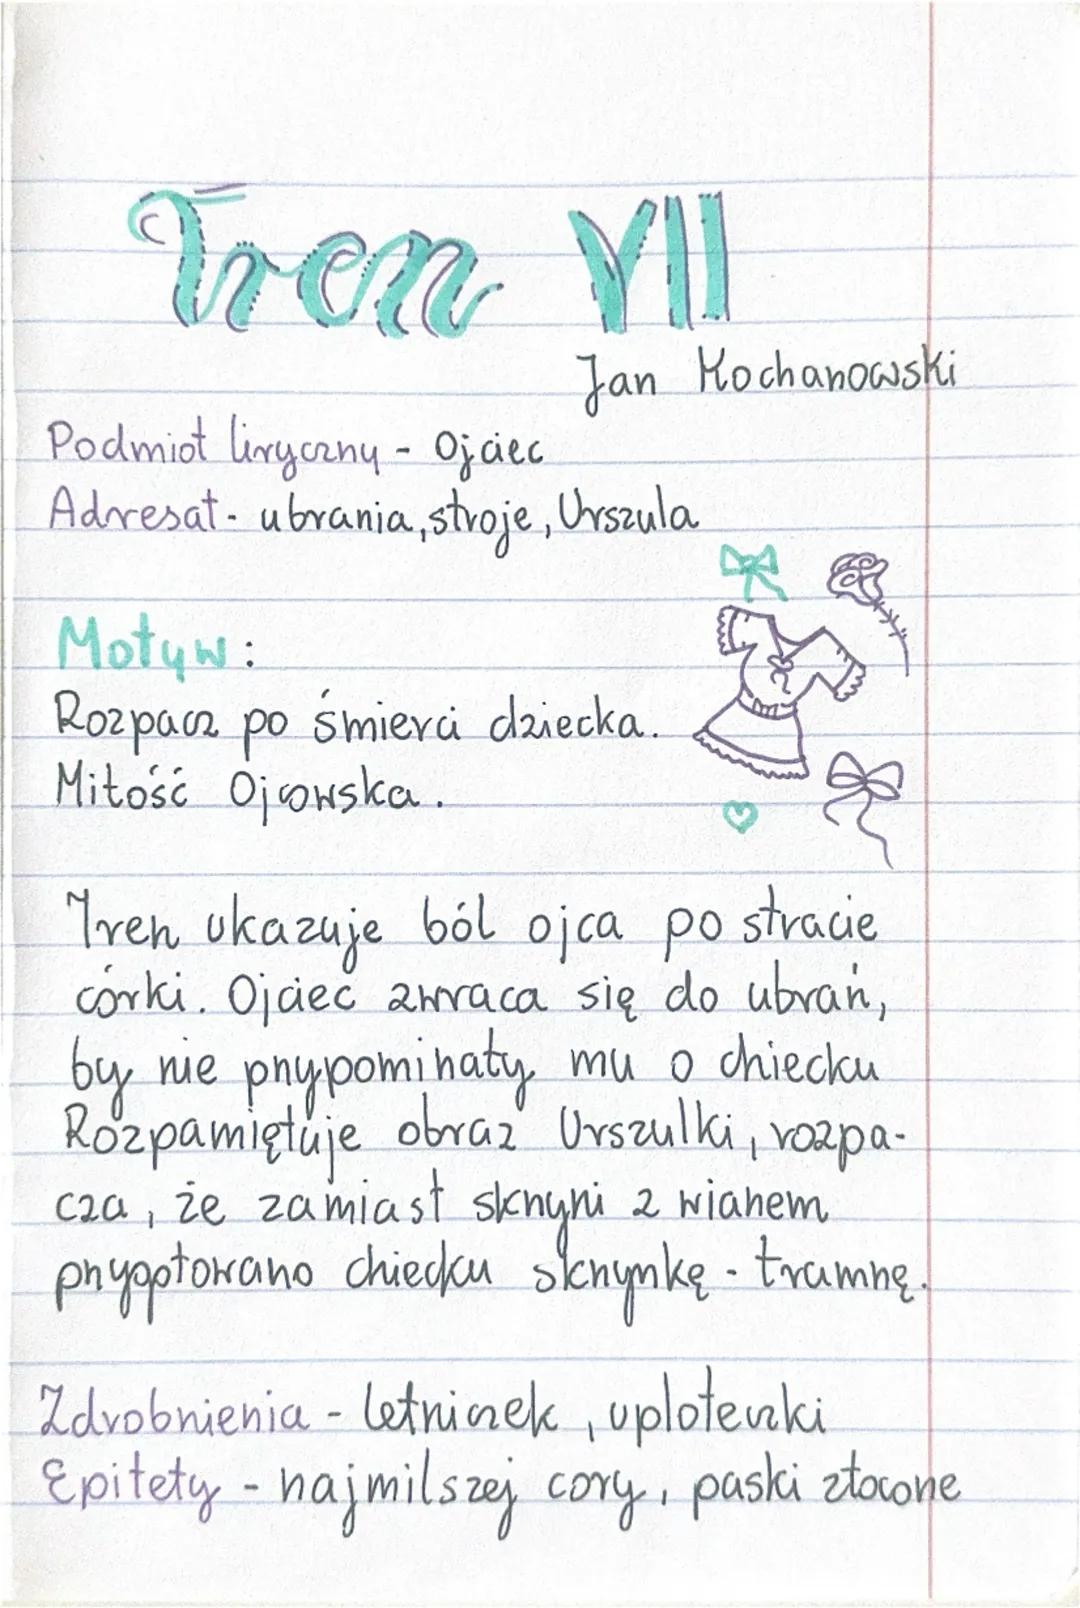 Tren VII
Jan Kochanowski
Podmiot liryczny - Ojciec
Adresat - ubrania, stroje, Urszula
Motyw:
Rozpacz po śmierci dziecka.
Miłość Ojcowska.
Tren ukazuje ból ojca po stracie
córki. Ojciec zwraca się do ubrań,
by nie przypominały mu o dziecku
Rozpamiętuje obraz Urszulki, rozpa-
cza, że zamiast skrzyni z wianem
przygotowano dziecku skrzynkę - trumnę.
Zdrobnienia - letniczek, uploteczki
Epitety - najmilszej cory, paski złocone